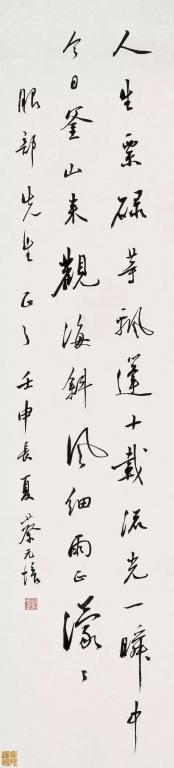 人生栗碌等飄蓬十載流光一瞬中
今日釜山來觀海斜風細雨正濛々
服部先生正之壬申長夏蔡元培